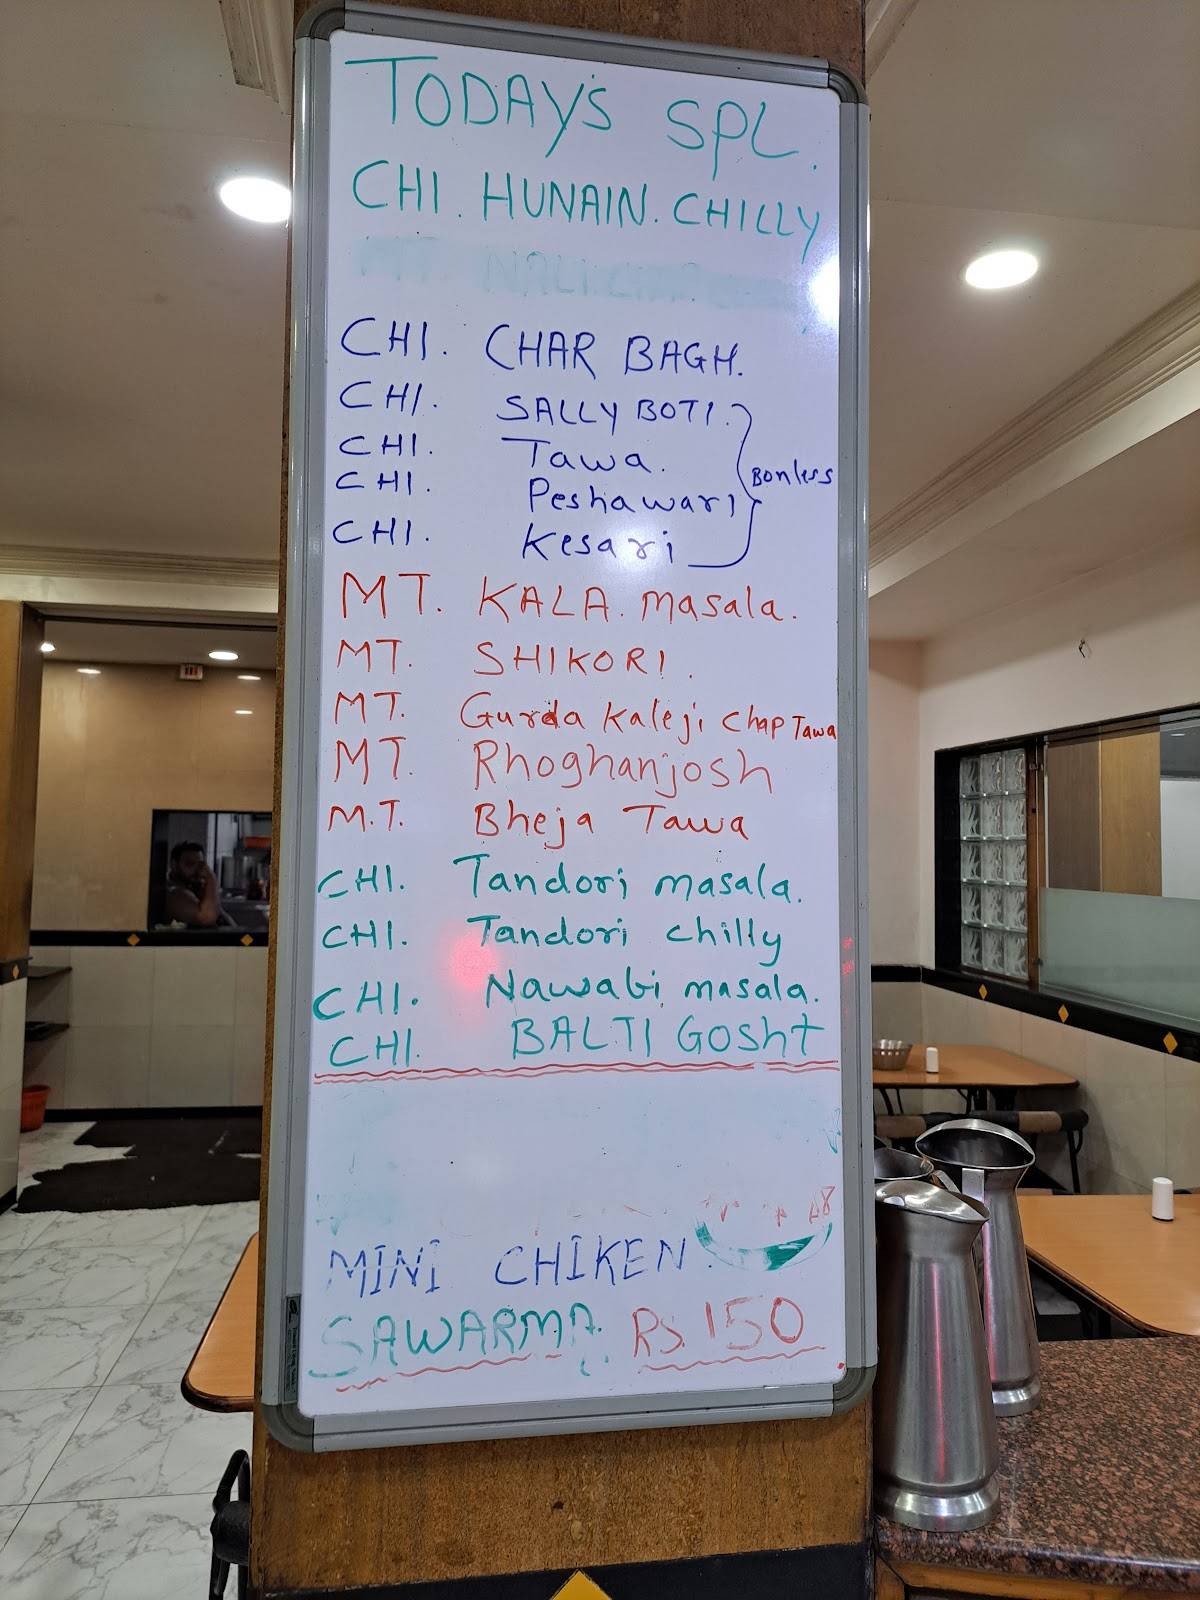 TODAY'S SPL.
CHI. HUNAIN. CHILLY
CHI. CHAR BAGH.
CHI. SALLY BOTI.
CHI. Tawa.
Bonless
CHI. Peshawari
CHI. Kesari
MT. KALA. masala.
MT. SHIKORI.
MT. Gurda Kaleji Chap Tawa
MT. Rhoghanjosh
M.T. Bheja Tawa
CHI. Tandori masala.
CHI. Tandori chilly
CHI. Nawabi masala.
CHI. BALTI Gosht
MINI CHIKEN.
SAWARMA. RS. 150